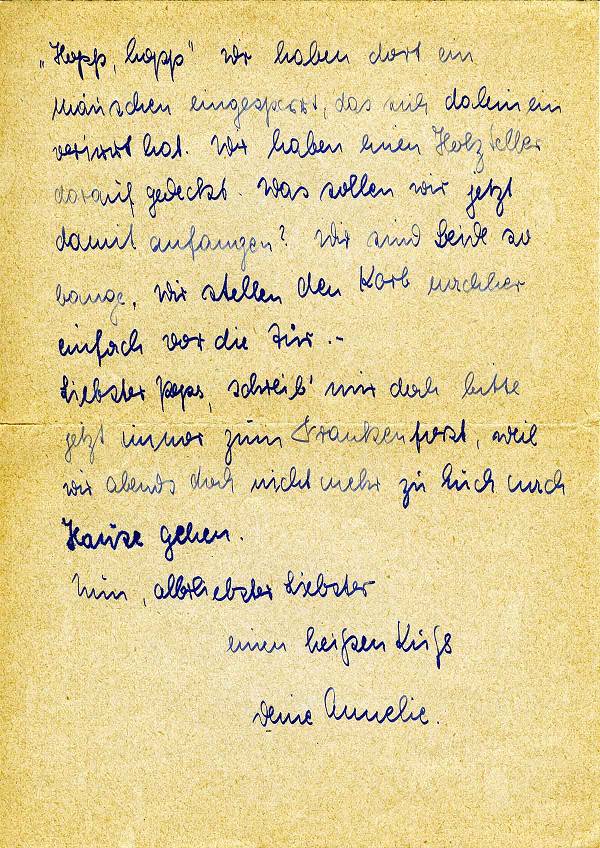 „Hopp, hopp" wir haben dort ein
Mäuschen eingesperrt, das sich dahinein
verirrt hat. Wir haben einen Holzteller
darauf gedeckt. Was sollen wir jetzt
damit anfangen? Wir sind beide so
bange, wir stellen den Korb nachher
einfach vor die Tür.-
Liebster Paps, schreib' mir doch bitte
jetzt immer zum Frankenforst, weil
wir abends doch nicht mehr zu Euch nach
Hause gehen.
Nun, allerliebster Liebster
einen heißen Kuß
Deine Annelie.